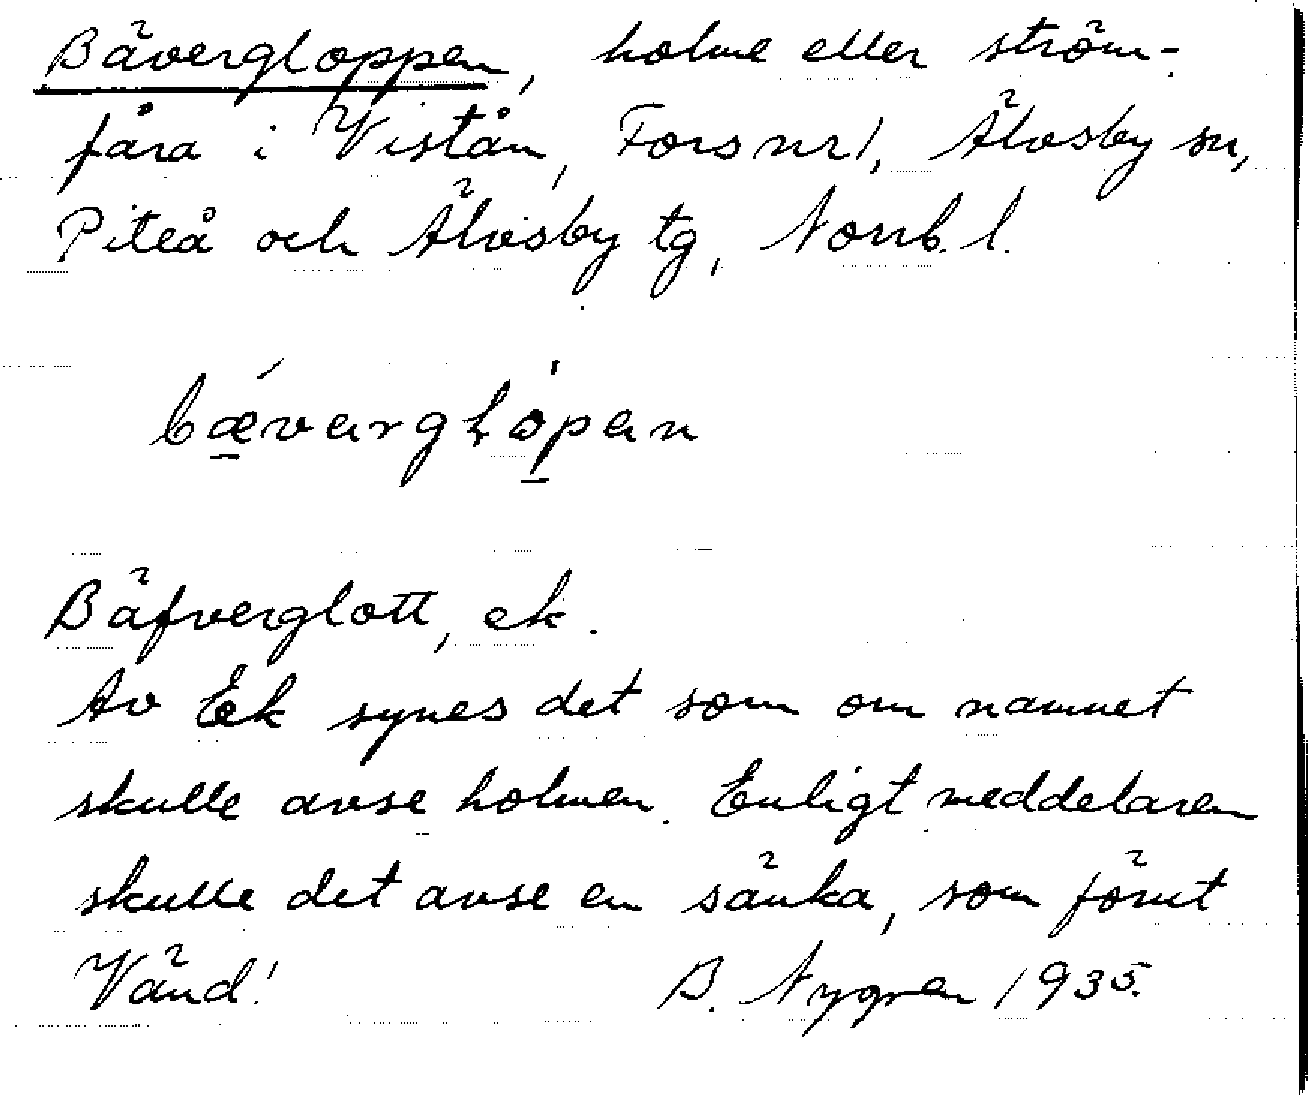 Bävergloppen, holme eller ström-
fåra i Viståm, Fors nr 1, Älvsby sn,
Piteå och Älvsby tg, Norrb. l.
bǽ̲varglo̲̍pan
Bäfverglott, ek.
Av Ek synes det som om namnet
skulle avse holmen. Enligt meddelaren
skulle det avse en sänka, som förut
Vänd! B. Nygren 1935.